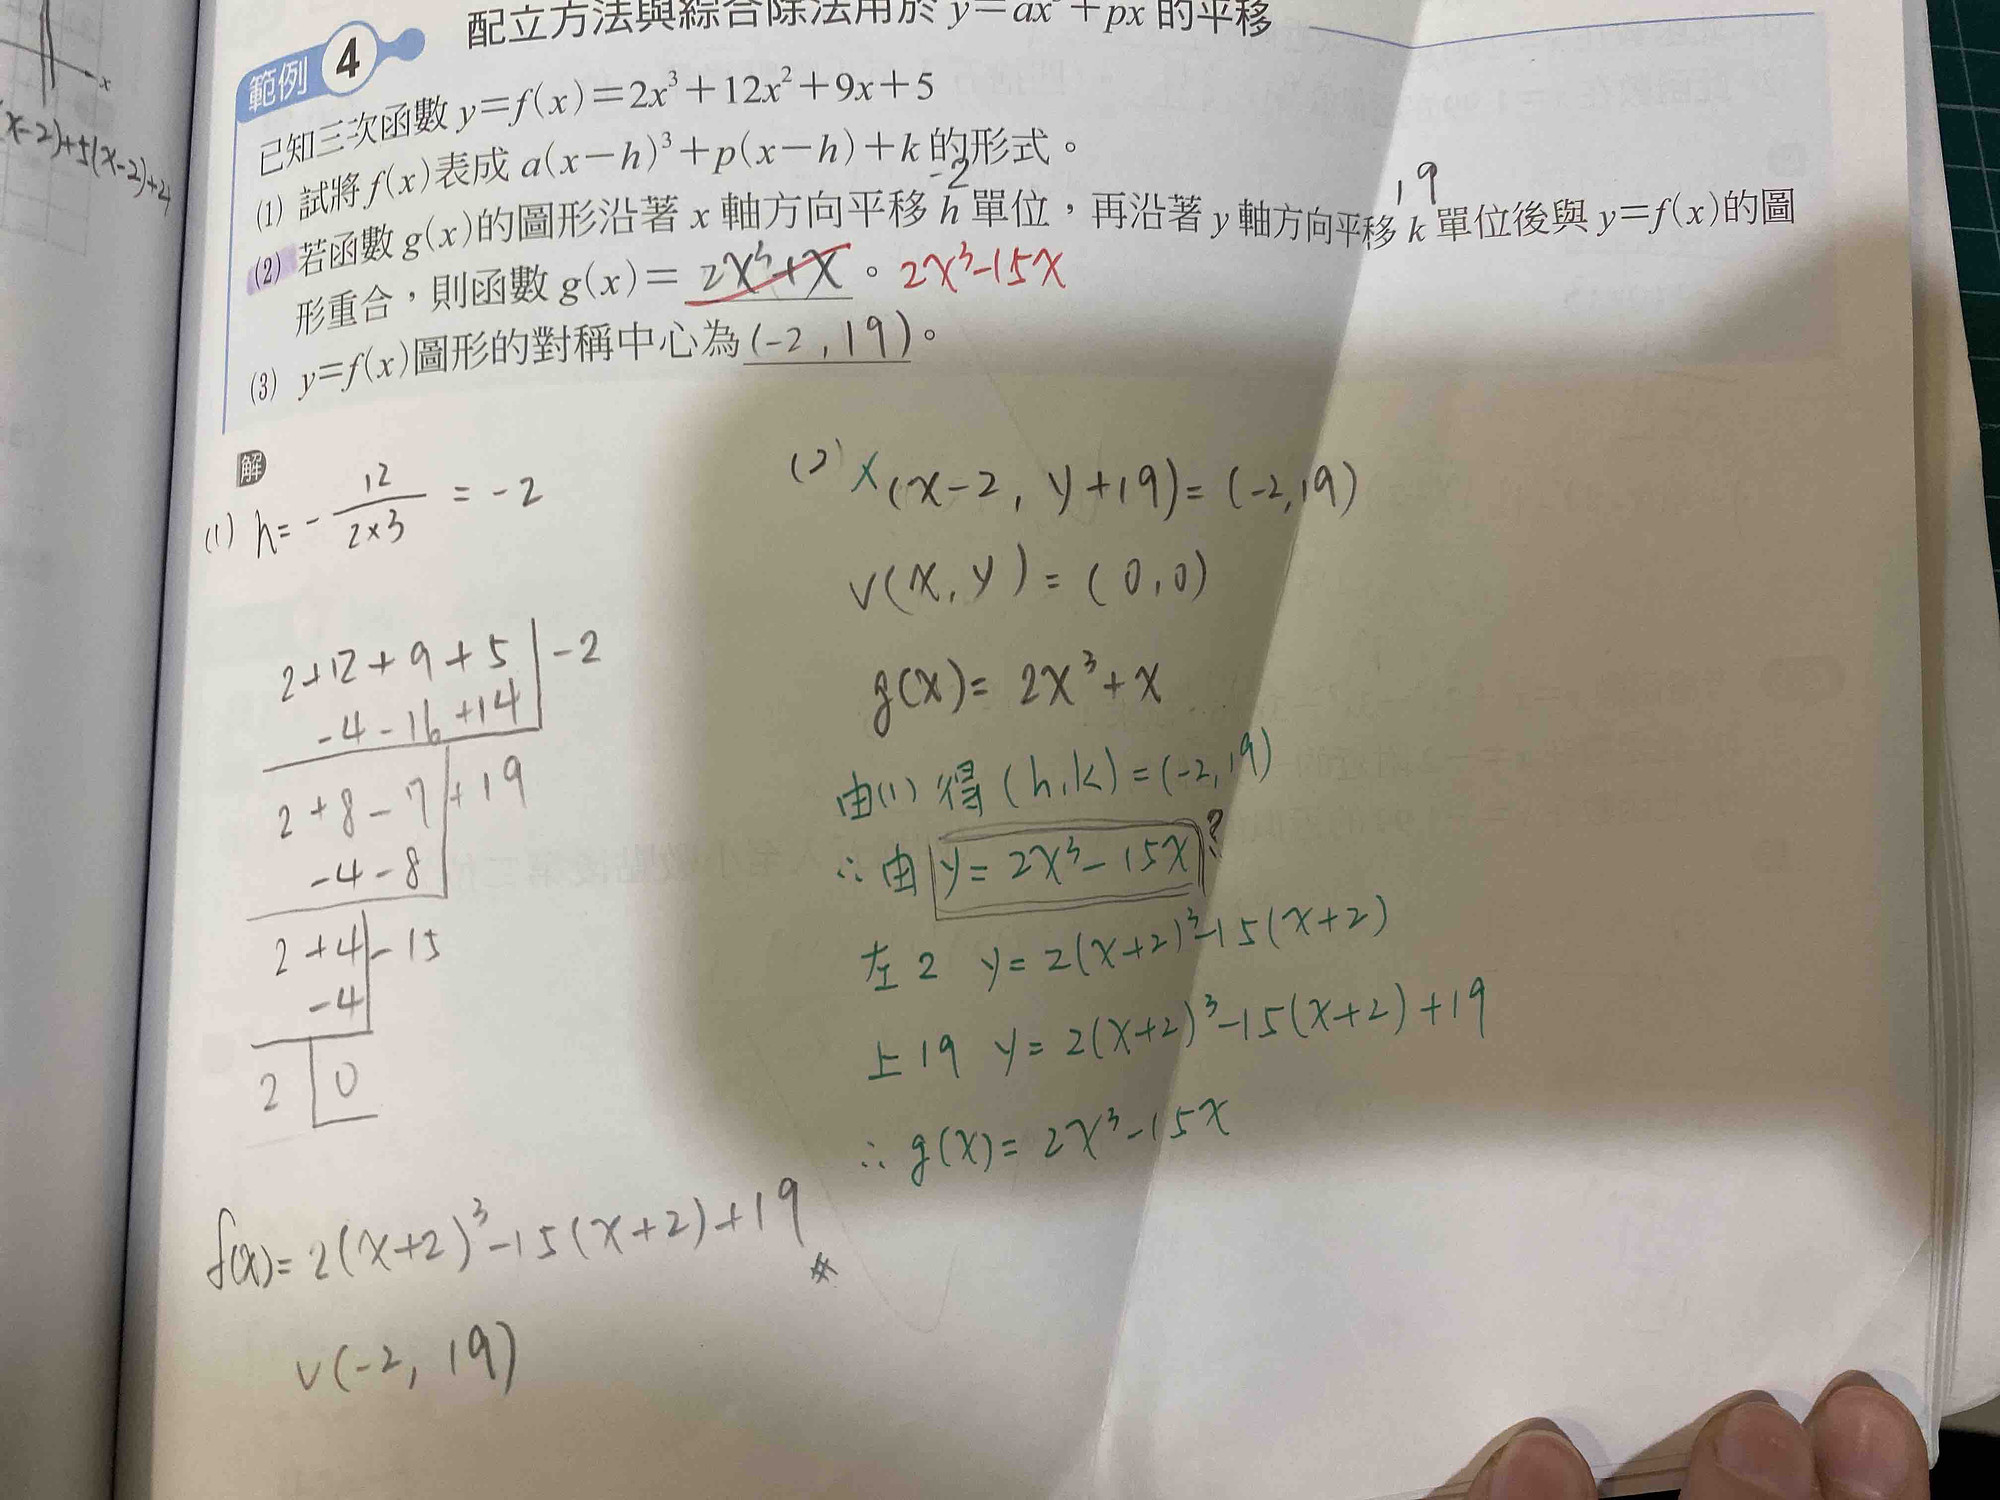 (x-2)+5(x-2)+4
x
配立方法與綜合除法用於 y=ax³+px 的平移
範例 4
已知三次函數 y=f(x)=2x³+12x²+9x+5
(1) 試將 f(x) 表成 a(x-h)³+p(x-h)+k 的形式。
-2
19
(2) 若函數 g(x) 的圖形沿著 x 軸方向平移 h 單位，再沿著 y 軸方向平移 k 單位後與 y=f(x) 的圖
形重合，則函數 g(x)= 2x³+x 。 2x³-15x
(3) y=f(x) 圖形的對稱中心為 (-2, 19)。
解
(1) h= - 12/2×3 = -2
2+12+9+5 | -2
-4-16+14
2+8-7+19
-4-8
2+4-15
-4
2 0
f(x)=2(x+2)³-15(x+2)+19
v(-2, 19)
(2) x (x-2, y+19)=(-2,19)
v(x, y)=(0,0)
g(x)= 2x³+x
由(1) 得 (h,k)=(-2,19)
∴由 y=2x³-15x ?
左2 y=2(x+2)³-15(x+2)
上19 y=2(x+2)³-15(x+2)+19
∴ g(x)=2x³-15x